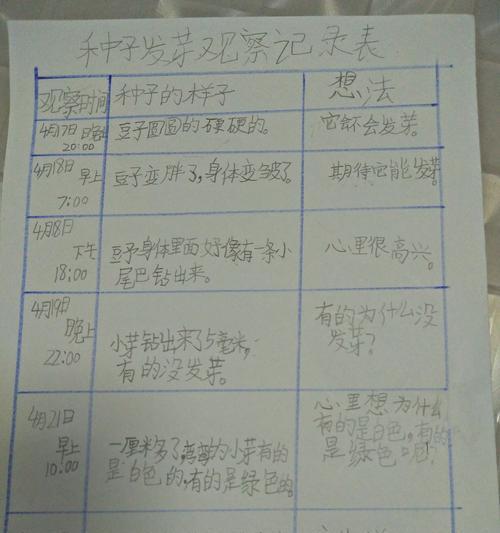 种子发芽观察记录表
观察时间 种子的样子 想法
4月7日 晚上 豆子圆圆的硬硬的。 它会发芽。
20:00
4月18日 早上 豆子变胖了,身体变皱了。 期待它能发芽。
7:00
4月8日
下午 豆子身体里面好像有一条小 心里很高兴。
18:00 尾巴钻出来。
4月19日 有的为什么没
晚上 小芽钻出来了5毫米, 发芽?
22:00 有的没发芽。
心里想为什么
4月21日 有的是白色,有的
早上 一厘米多了弯弯的小芽有的 是绿色呢?
10:00 是白色的,有的是绿色的。